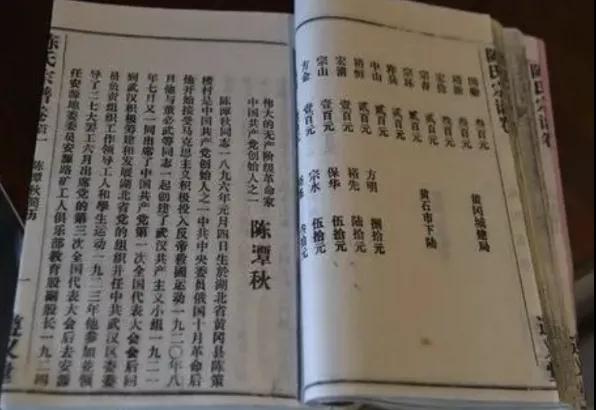 叁百元
叁百元
贰百元
宗春 贰百元 黄石市下陆
贰百元
贰百元
中山 贰百元 方明 捌拾元
裕恒 贰百元 裕先 陆拾元
宏清 壹百元 保华 伍拾元
宗山 壹百元 宗水 伍拾元
方金 壹百元
伟大的无产阶级革命家
中国共产党创始人之一
陈潭秋
陈潭秋同志一八九六年元月四日生於湖北省黄冈县陈策
楼村是中国共产党创始人之一中共中央委员俄国十月革命后
他开始接受马克思主义积极投入反帝救國运动一九二〇年八
月他与董必武等同志一起创建了武汉共产主义小组一九二一
年七月又一同出席了中国共产党第一次全国代表大会会后回
到武汉积极筹建和发展湖北省党的组织并任中共武汉区委委
员负责组织工作领导工人和學生运动一九二三年他参加並领
导了二七大罢工六月出席党的第三次全国代表大会后去安源
任安源地委委员安源路矿工人俱乐部教育股副股长一九二四
陈氏宗谱卷首 陈潭秋简历 一